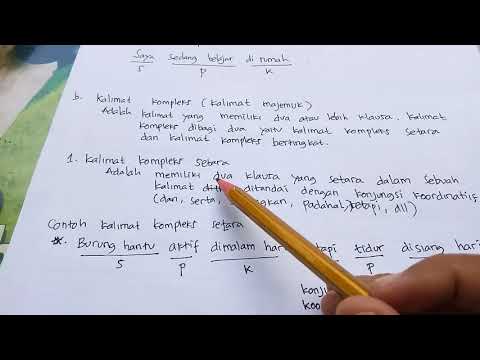 Saya sedang belajar di rumah
S P K
b. Kalimat kompleks (kalimat majemuk)
Adalah kalimat yang memiliki dua atau lebih klausa. Kalimat
kompleks dibagi dua yaitu kalimat kompleks setara
dan kalimat kompleks bertingkat.
1. Kalimat kompleks setara
Adalah memiliki dua klausa yang setara dalam sebuah
kalimat ditandai dengan konjungsi koordinatif,
(dan, serta, padahal, tetapi, dll)
Contoh kalimat kompleks setara
*. Burung hantu aktif dimalam hari tidur disiang hari
S P K P